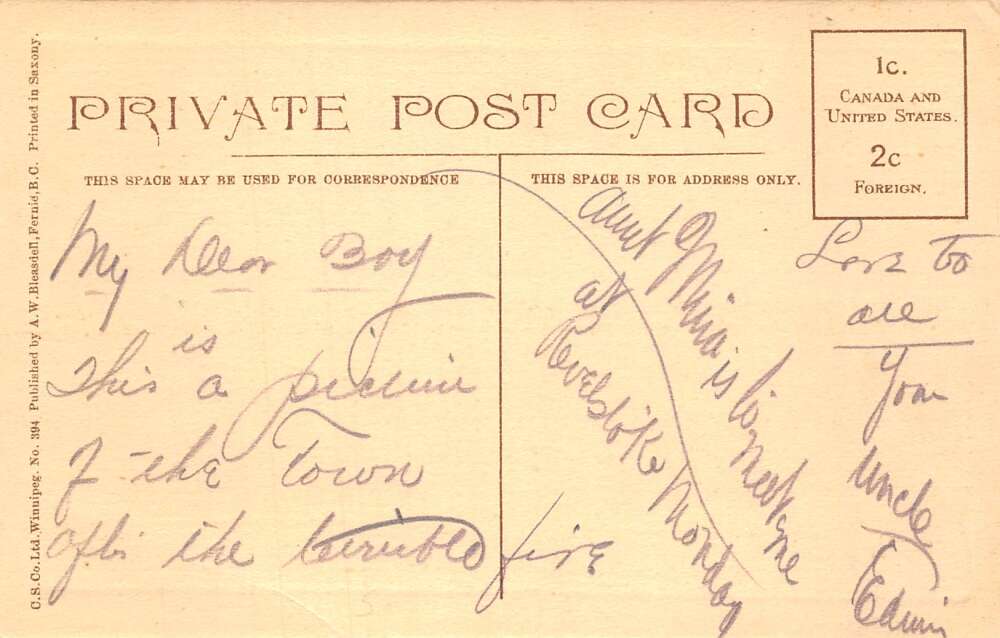 PRIVATE POST CARD
THIS SPACE MAY BE USED FOR CORRESPONDENCE
THIS SPACE IS FOR ADDRESS ONLY.
1c.
CANADA AND
UNITED STATES.
2c
FOREIGN.
C.S.Co.Ltd.Winnipeg. No. 394 Published by A.W.Bleasdell, Fernie, B.C. Printed in Saxony.
My Dear Boy
This is a picture
of the Town
after the terrible fire
Aunt Mina is to meet me
at Revelstoke Monday
Love to
all
Your
Uncle
Edwin